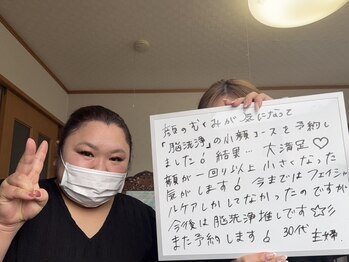 顔のむくみが気になって
「脳洗浄」の小顔コースを予約し
ました♪ 結果… 大満足♡
顔が一回り以上小さくなった
気がします♪ 今まではフェイシャ
ルケアしかしてなかったのですが
今後は脳洗浄推しです☆彡
また予約します♪ 30代 主婦.